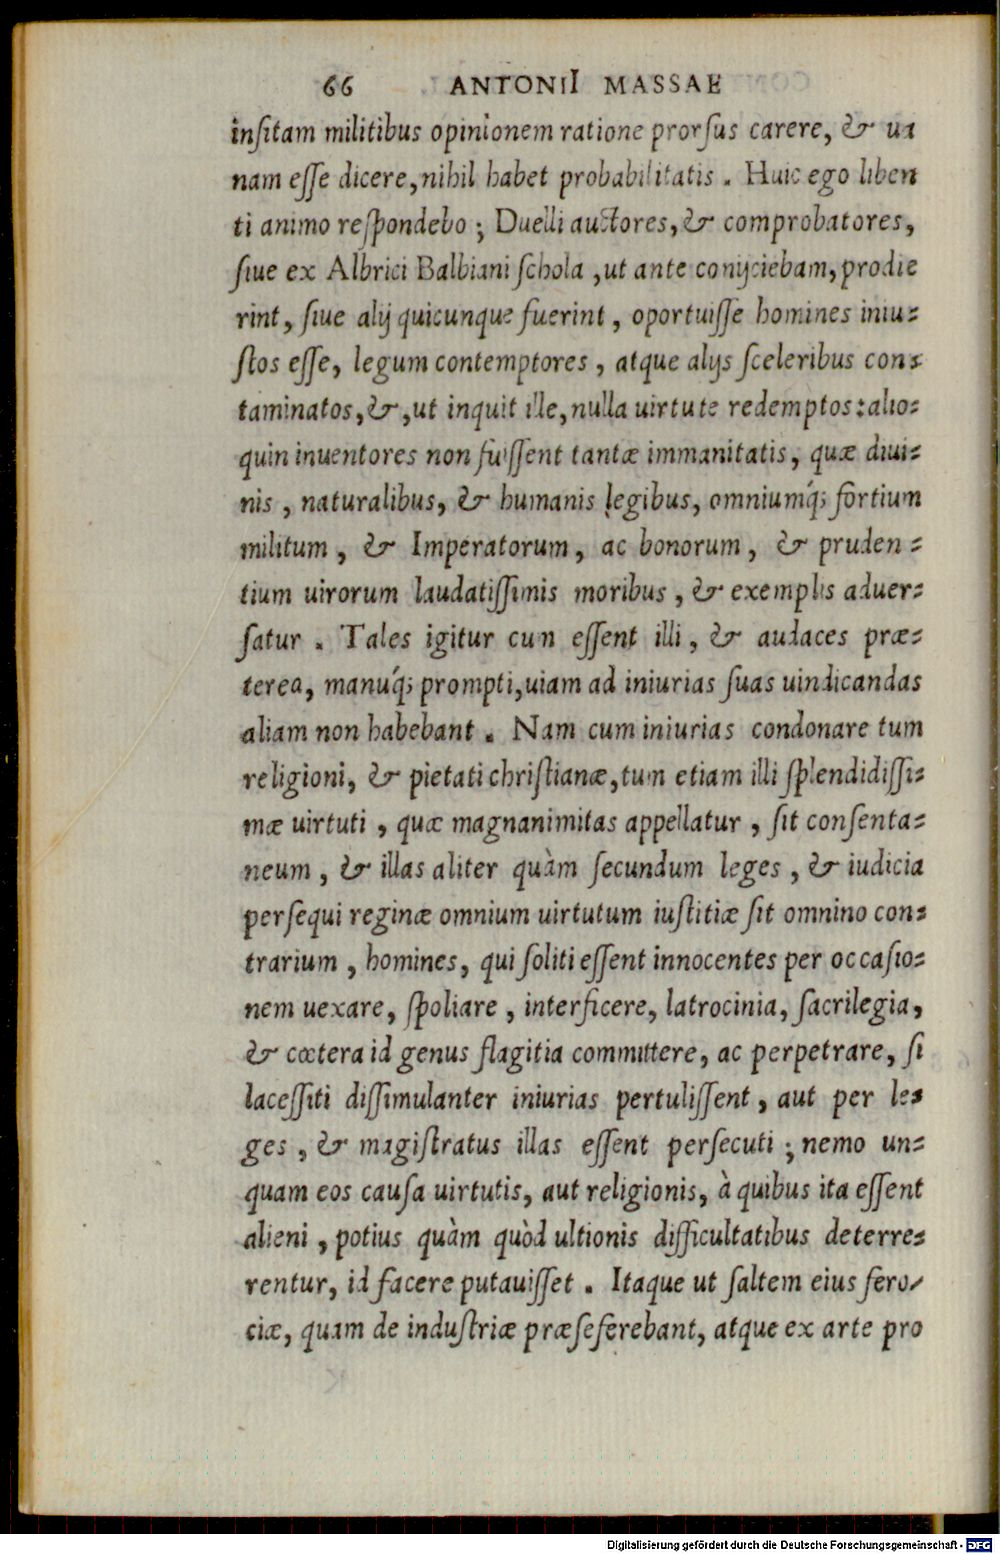 66 ANTONII MASSAE
inſitam militibus opinionem ratione prorſus carere, & ua
nam eſſe dicere, nihil habet probabilitatis. Huic ego liben
ti animo reſpondebo; Duelli auctores, & comprobatores,
ſiue ex Albrici Balbiani ſchola, ut ante conijciebam, prodie
rint, ſiue alij quicunque fuerint, oportuiſſe homines iniu-
ſtos eſſe, legum contemptores, atque alijs ſceleribus con-
taminatos, &, ut inquit ille, nulla uirtute redemptos: alio-
quin inuentores non fuiſſent tantæ immanitatis, quæ diui-
nis, naturalibus, & humanis legibus, omniumq́; fortium
militum, & Imperatorum, ac bonorum, & pruden-
tium uirorum laudatiſſimis moribus, & exemplis aduer-
ſatur. Tales igitur cum eſſent illi, & audaces præ-
terea, manuq́; prompti, uiam ad iniurias ſuas uindicandas
aliam non habebant. Nam cum iniurias condonare tum
religioni, & pietati chriſtianæ, tum etiam illi ſplendidiſſi-
mæ uirtuti, quæ magnanimitas appellatur, ſit conſenta-
neum, & illas aliter quàm ſecundum leges, & iudicia
perſequi reginæ omnium uirtutum iuſtitiæ ſit omnino con-
trarium, homines, qui ſoliti eſſent innocentes per occaſio-
nem uexare, ſpoliare, interficere, latrocinia, ſacrilegia,
& cœtera id genus flagitia committere, ac perpetrare, ſi
laceſſiti diſſimulanter iniurias pertuliſſent, aut per le-
ges, & magiſtratus illas eſſent perſecuti; nemo un-
quam eos cauſa uirtutis, aut religionis, à quibus ita eſſent
alieni, potius quàm quòd ultionis difficultatibus deterre-
rentur, id facere putauiſſet. Itaque ut ſaltem eius fero-
ciæ, quam de induſtriæ præſeferebant, atque ex arte pro
Digitalisierung gefördert durch die Deutsche Forschungsgemeinschaft - DFG